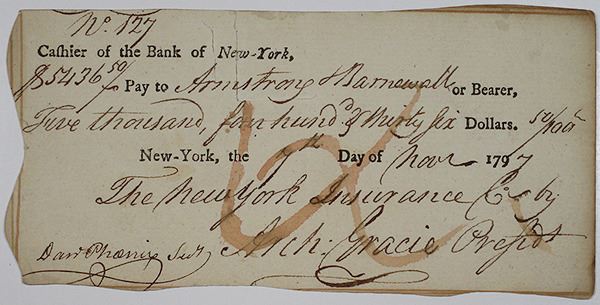 No. 127
Cashier of the Bank of New-York,
$5436 50/ Pay to Armstrong & Barnewall or Bearer,
Five thousand, four hund.d & thirty six Dollars. 50/100
New-York, the 7th Day of Novr 1797
The New York Insurance Co. by
Arch. Gracie Presidt
Danl Phoenix Secy